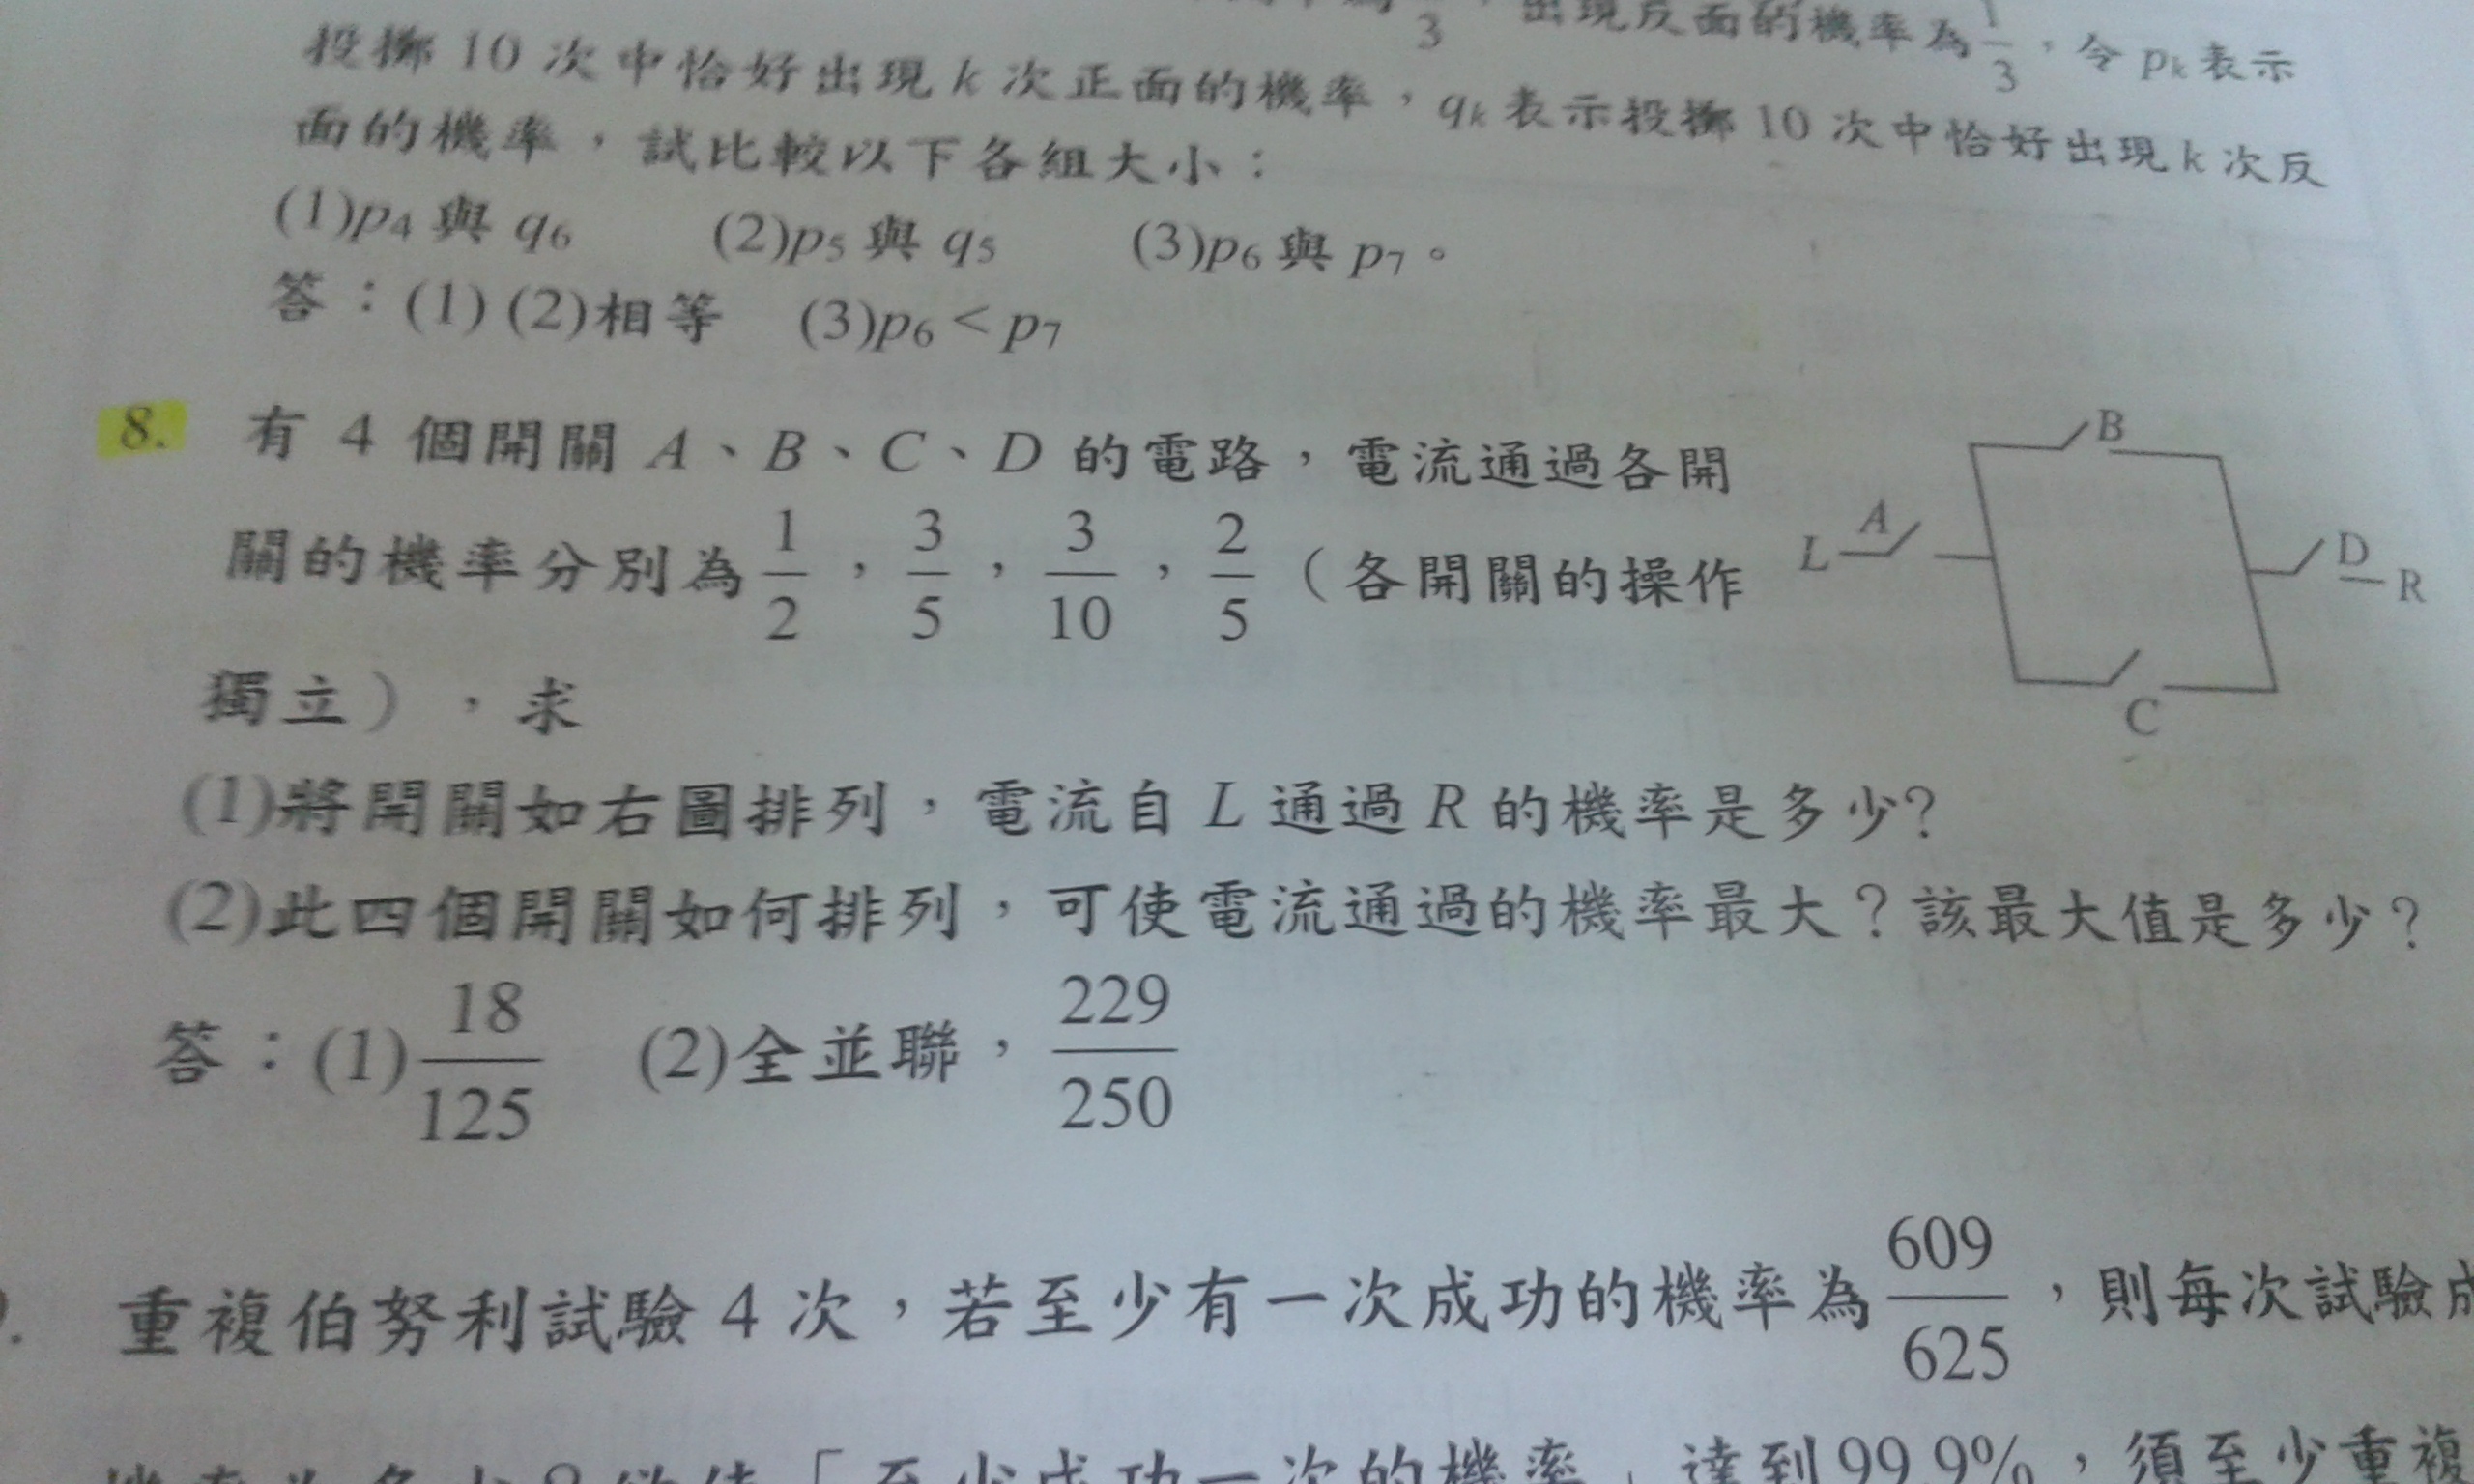 3 ，出現反面的機率為 1/3 ，令 pk 表示
投擲 10 次中恰好出現 k 次正面的機率，qk 表示投擲 10 次中恰好出現 k 次反
面的機率，試比較以下各組大小：
(1)p4 與 q6 (2)p5 與 q5 (3)p6 與 p7。
答：(1) (2)相等 (3)p6 < p7
8. 有 4 個開關 A、B、C、D 的電路，電流通過各開
關的機率分別為 1/2 ， 3/5 ， 3/10 ， 2/5 （各開關的操作
獨立），求
L A B C D R
(1)將開關如右圖排列，電流自 L 通過 R 的機率是多少？
(2)此四個開關如何排列，可使電流通過的機率最大？該最大值是多少？
答：(1) 18/125 (2)全並聯， 229/250
重複伯努利試驗 4 次，若至少有一次成功的機率為 609/625 ，則每次試驗成
「至少成功一次的機率」達到 99.9%，須至少重複